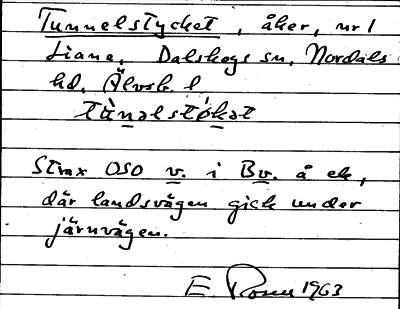 Tunnelstycket, åker, nr 1
Liane, Dalskogs sn, Nordals
hd, Älvsb. l
tànəlstýkət
Strax OSO v. i Bv. å ek,
där landsvägen gick under
järnvägen.
E. Rosen 1963